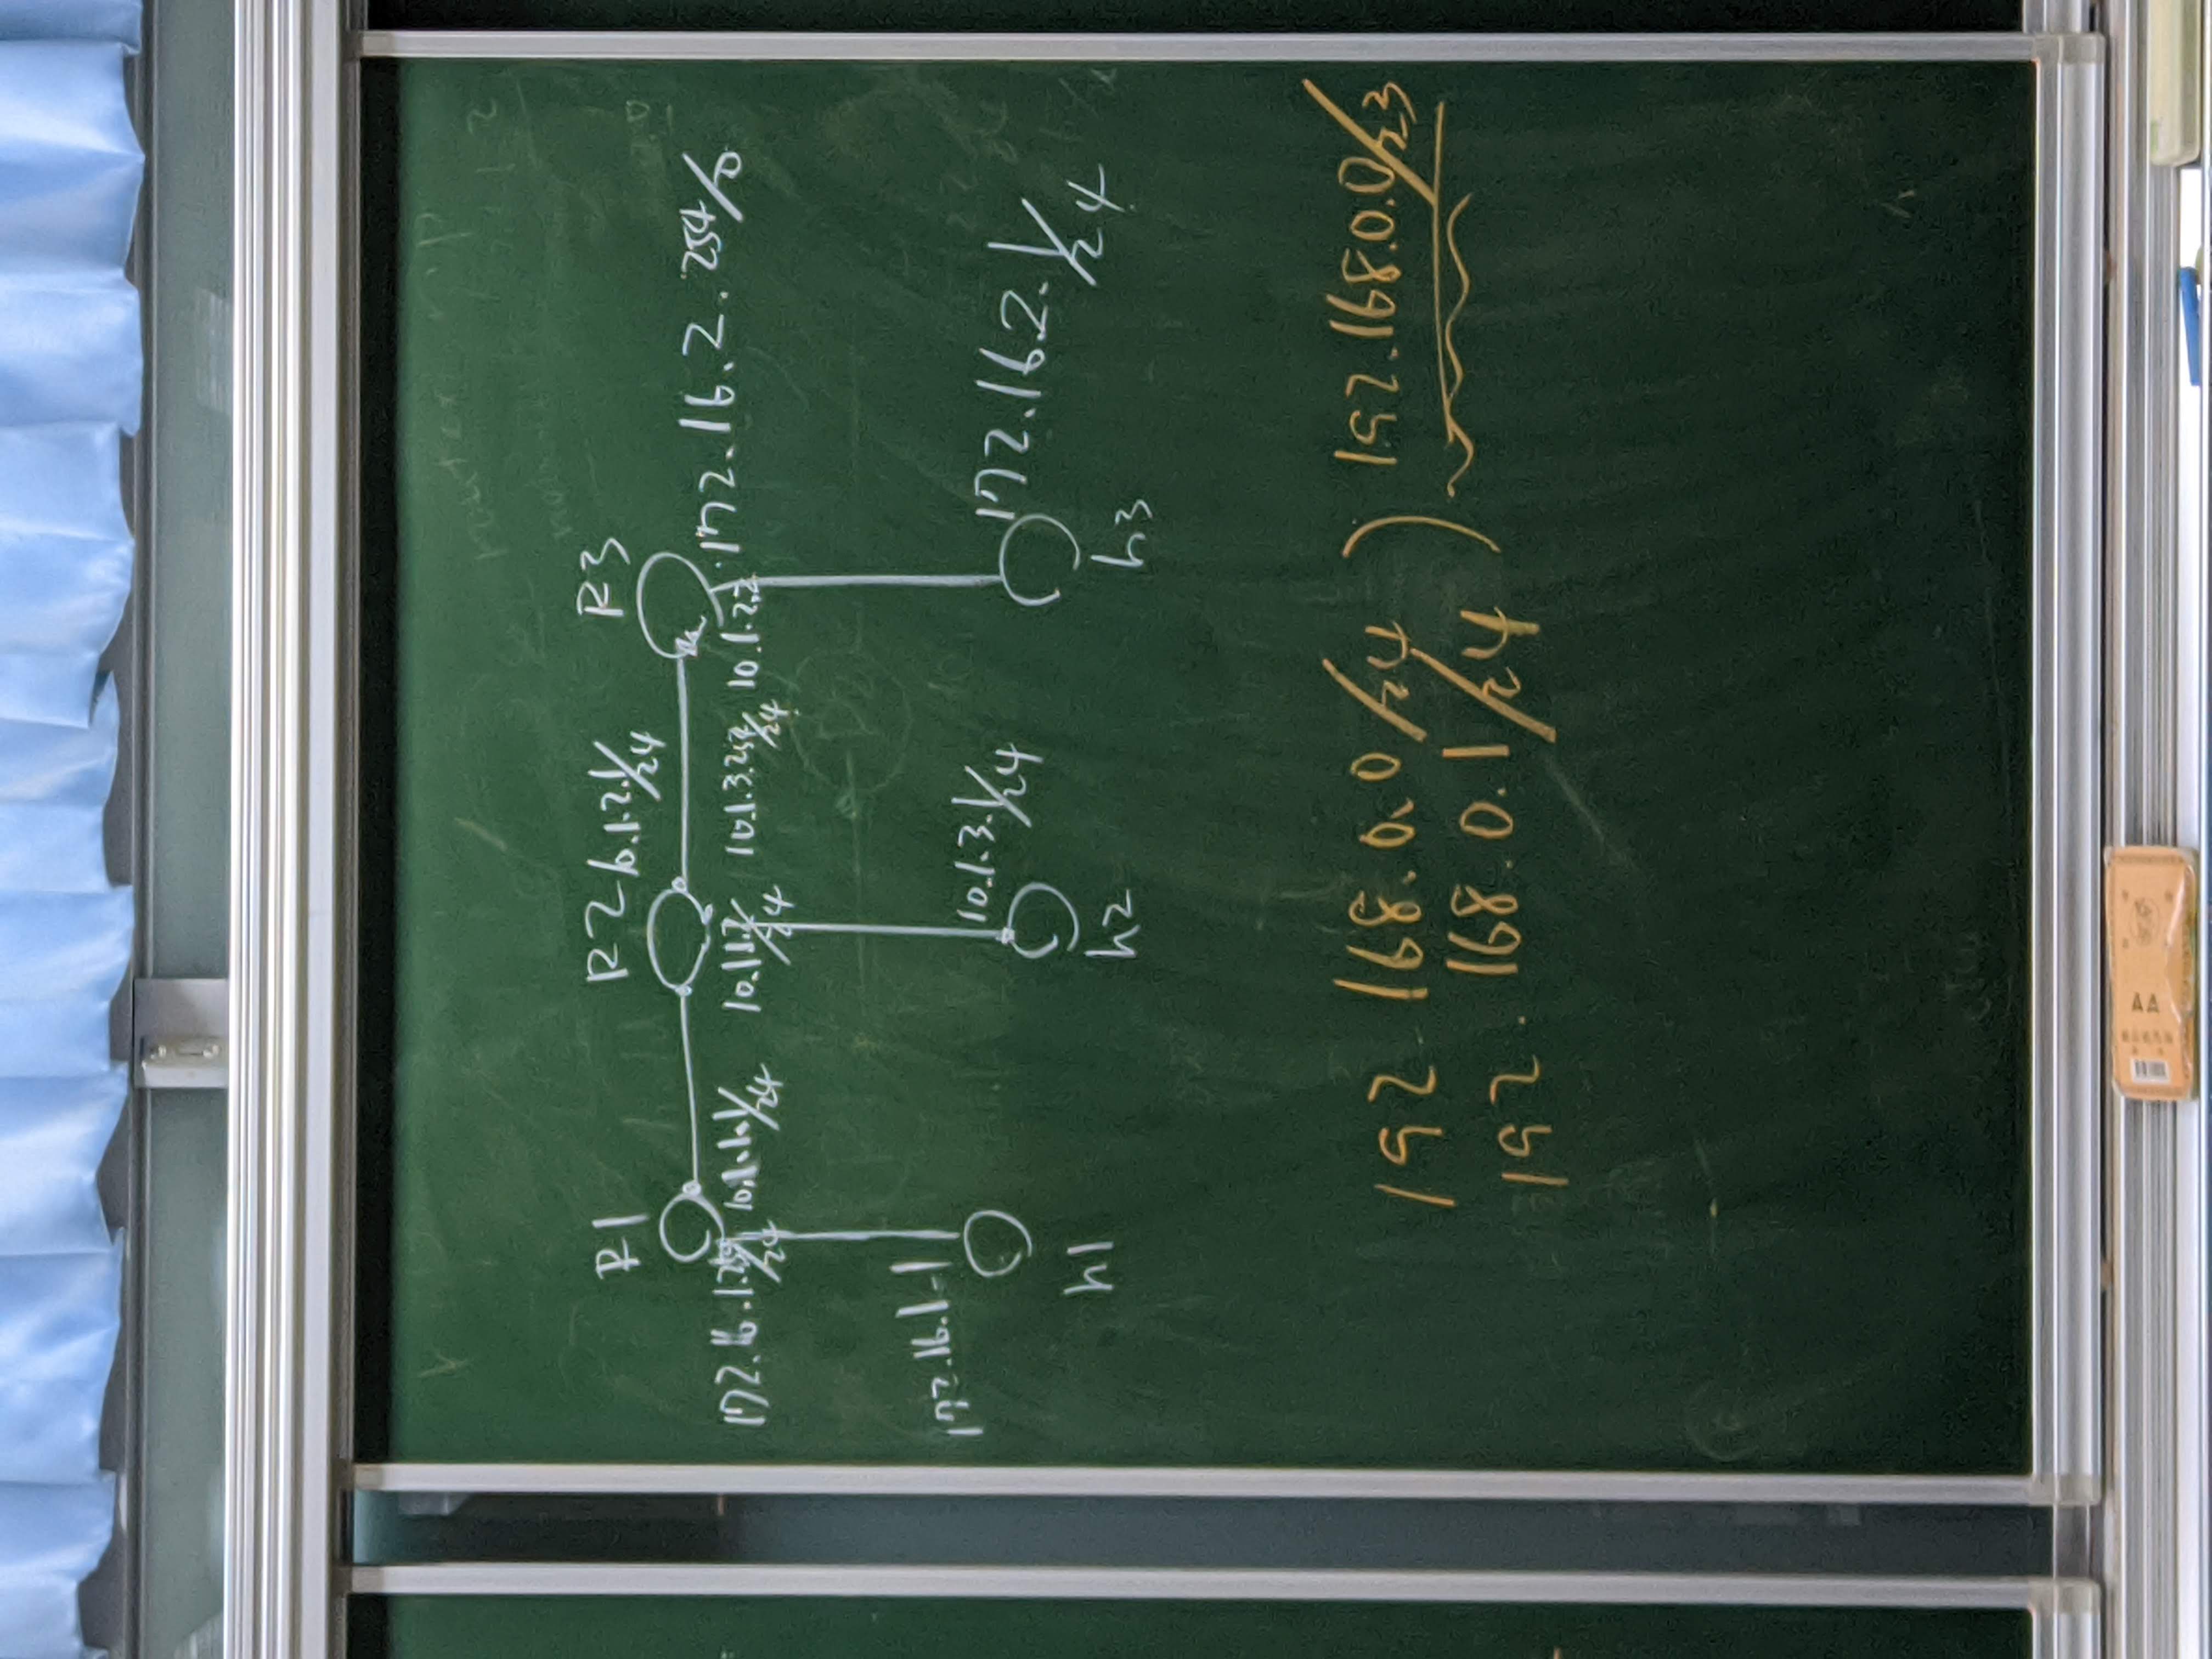 R1
R2
10.1.2.1/24
R3
172.16.1.254/24
10.1.1.1/24
10.1.1.2/24
10.1.3.254/24
10.1.2.2
172.16.2.254/0
172.16.1.1
10.1.3.1/24
172.16.2.1/24
h1
h2
h3
192.168.0.0/24
192.168.0.1/24
) 192.168.0.0/23
AA